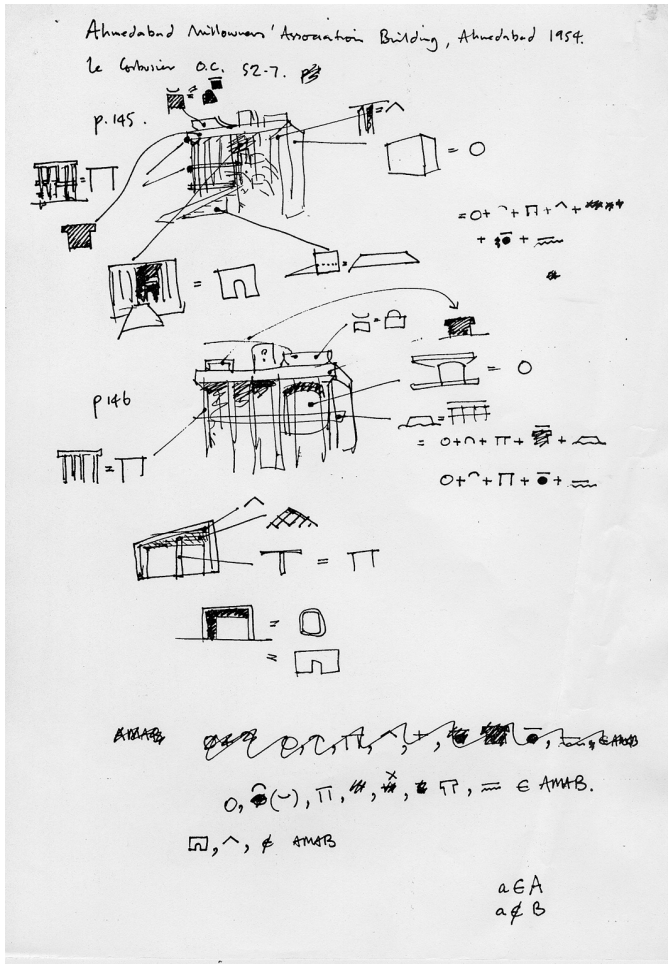 Ahmedabad Millowners' Association Building, Ahmedabad 1954.
Le Corbusier O.C. 52-7.
p.145.
= ^
= O
= O + ⌒ + Π + ^ +
+ + 
=
=
?
=
= O
p 146
=
= O + ∩ + Π + +
O + ⌒ + Π + +
=
^
=
=
=
AMAB
O, (⌣), Π, , , , ∈ AMAB.
, ^, ∉ AMAB
a ∈ A
a ∉ B